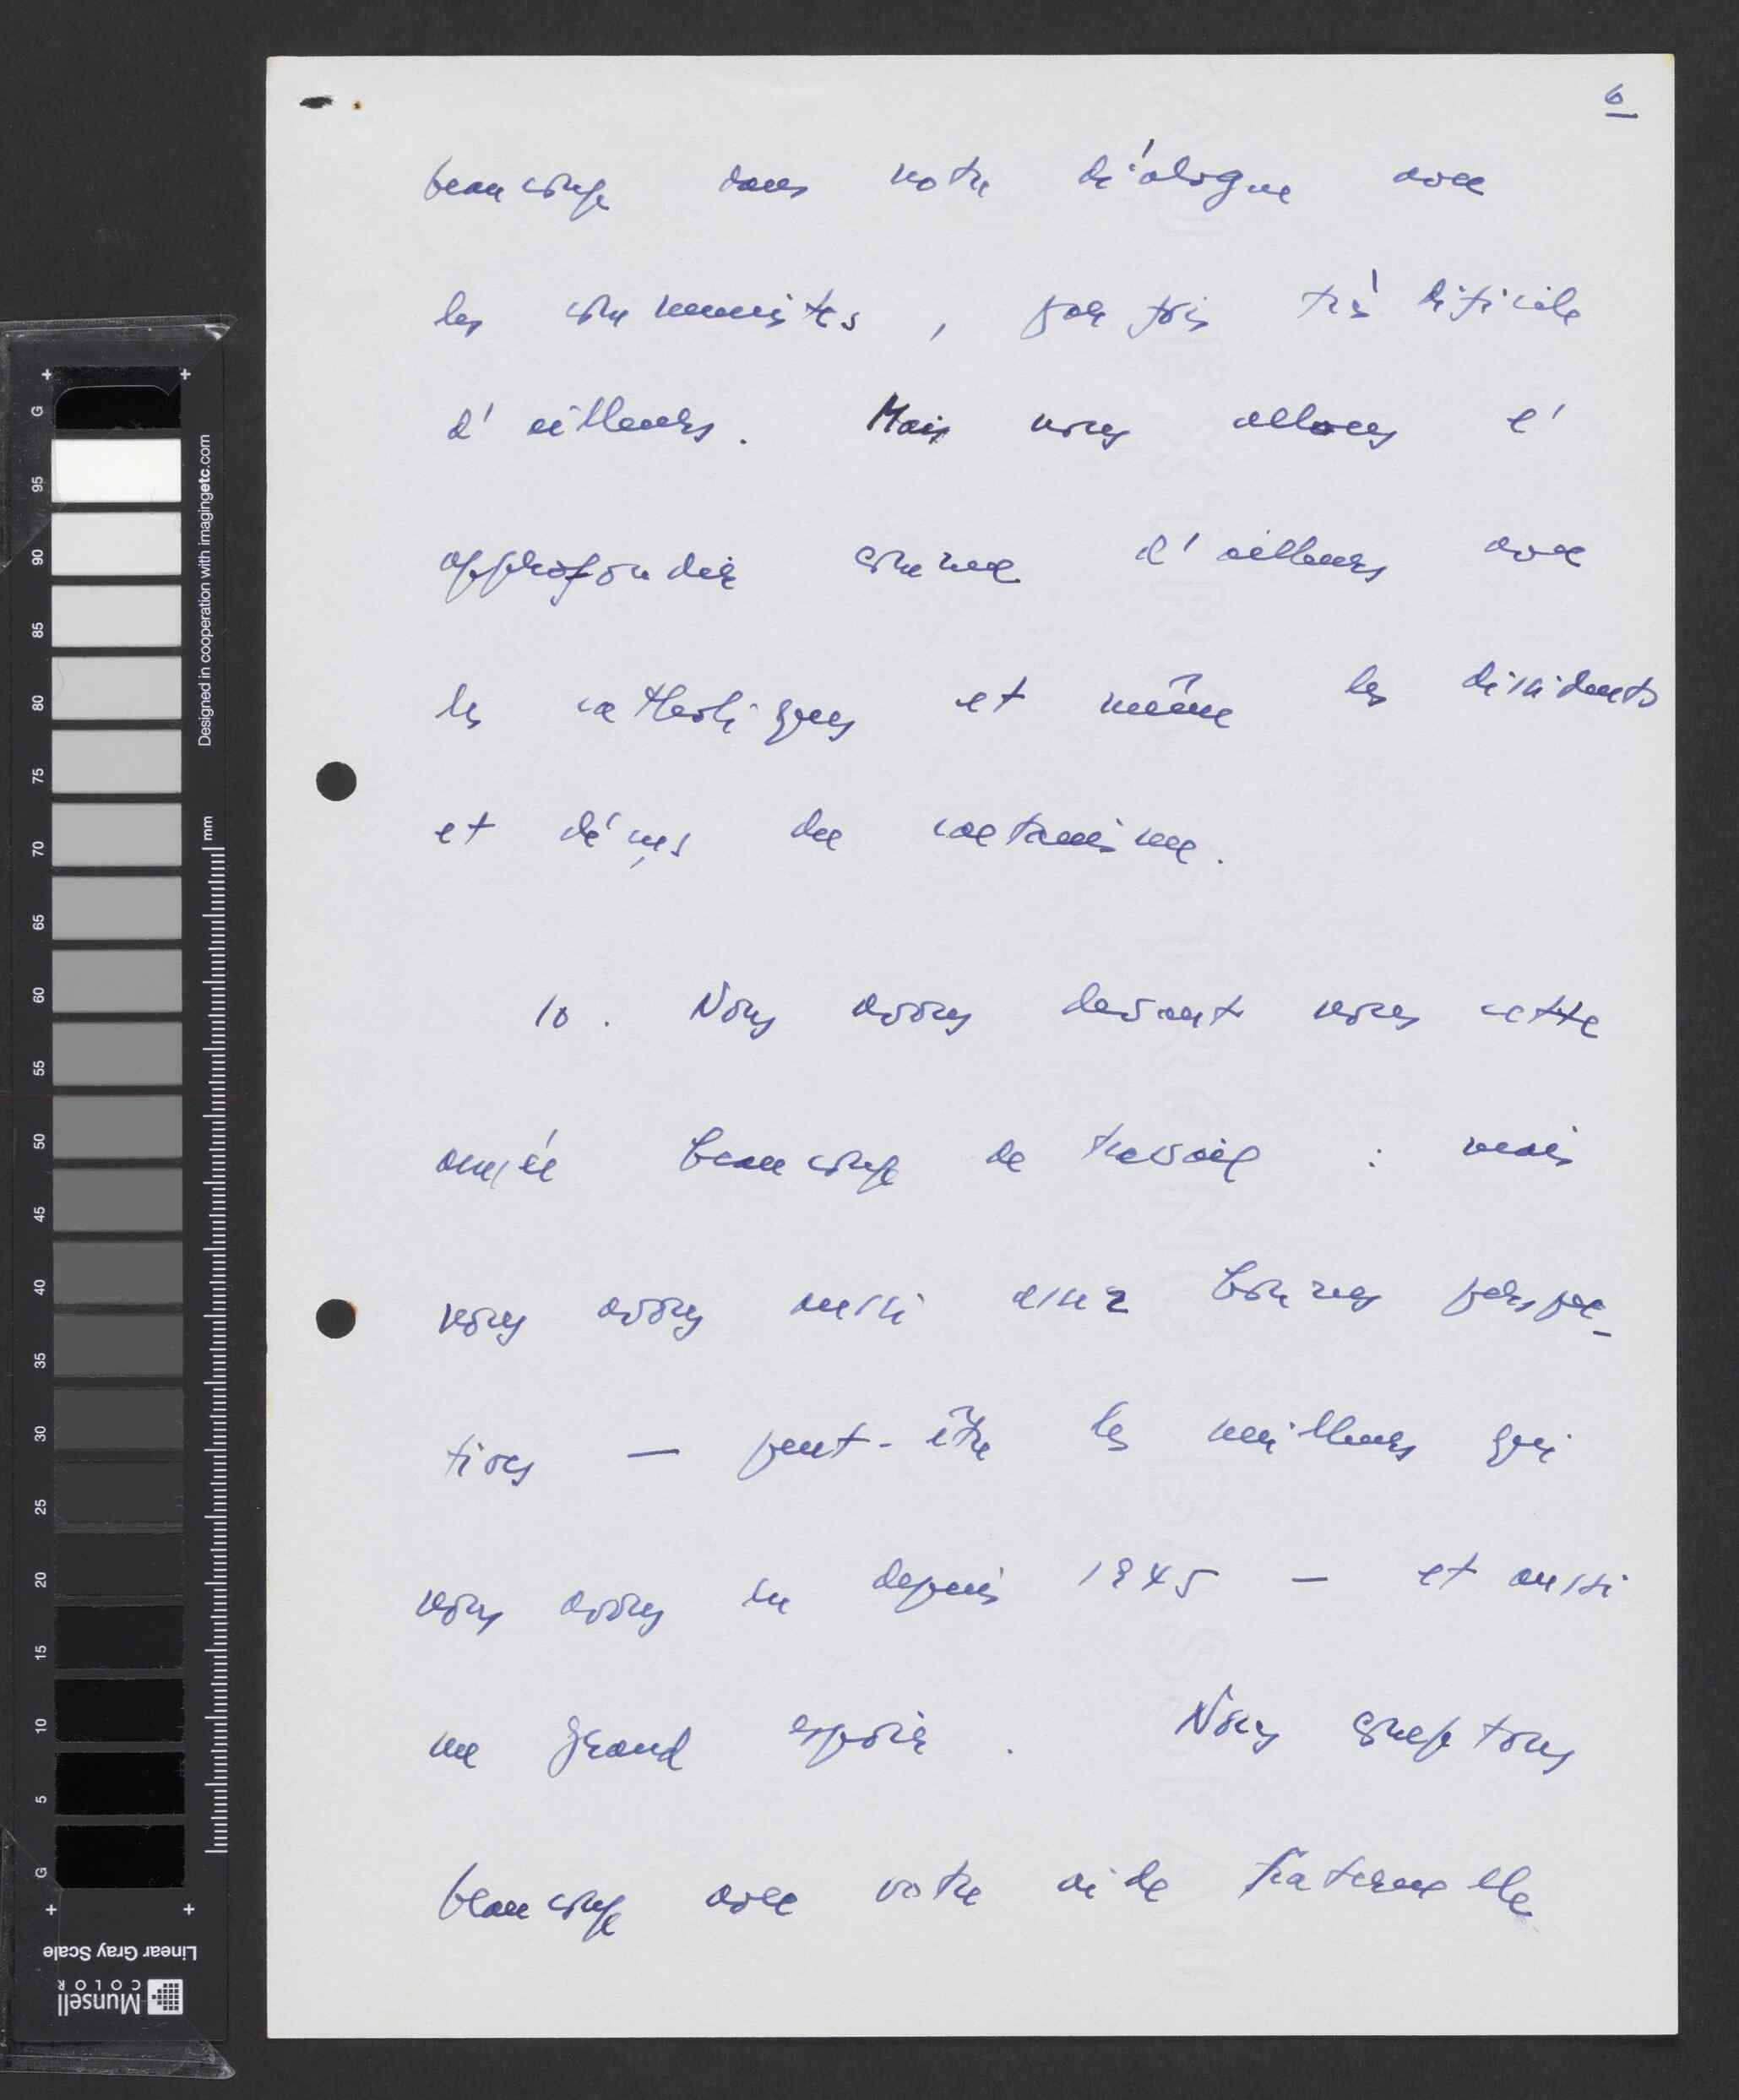 6
beaucoup dans notre diálogue avec
les communistes, par fois trè dificile
d'ailleurs. Mais nous allons l'
approfondir comme d'ailleurs avec
les catholiques et même les dissidents
et déçus du caetanisme.
10. Nous avons devant nous cette
année beaucoup de travail : mais
nous avons aussi assez bonnes perspec-
tives — peut-être les meilleurs qui
nous avons eu depuis 1945 — et aussi
un grand espoir. Nous comptons
beaucoup avec votre aide fraternelle
G 95 90 85 80 75 70 65 60 55 50 45 40 35 30 25 20 15 10 5 G
Designed in cooperation with imagingetc.com
mm
Linear Gray Scale
Munsell
COLOR